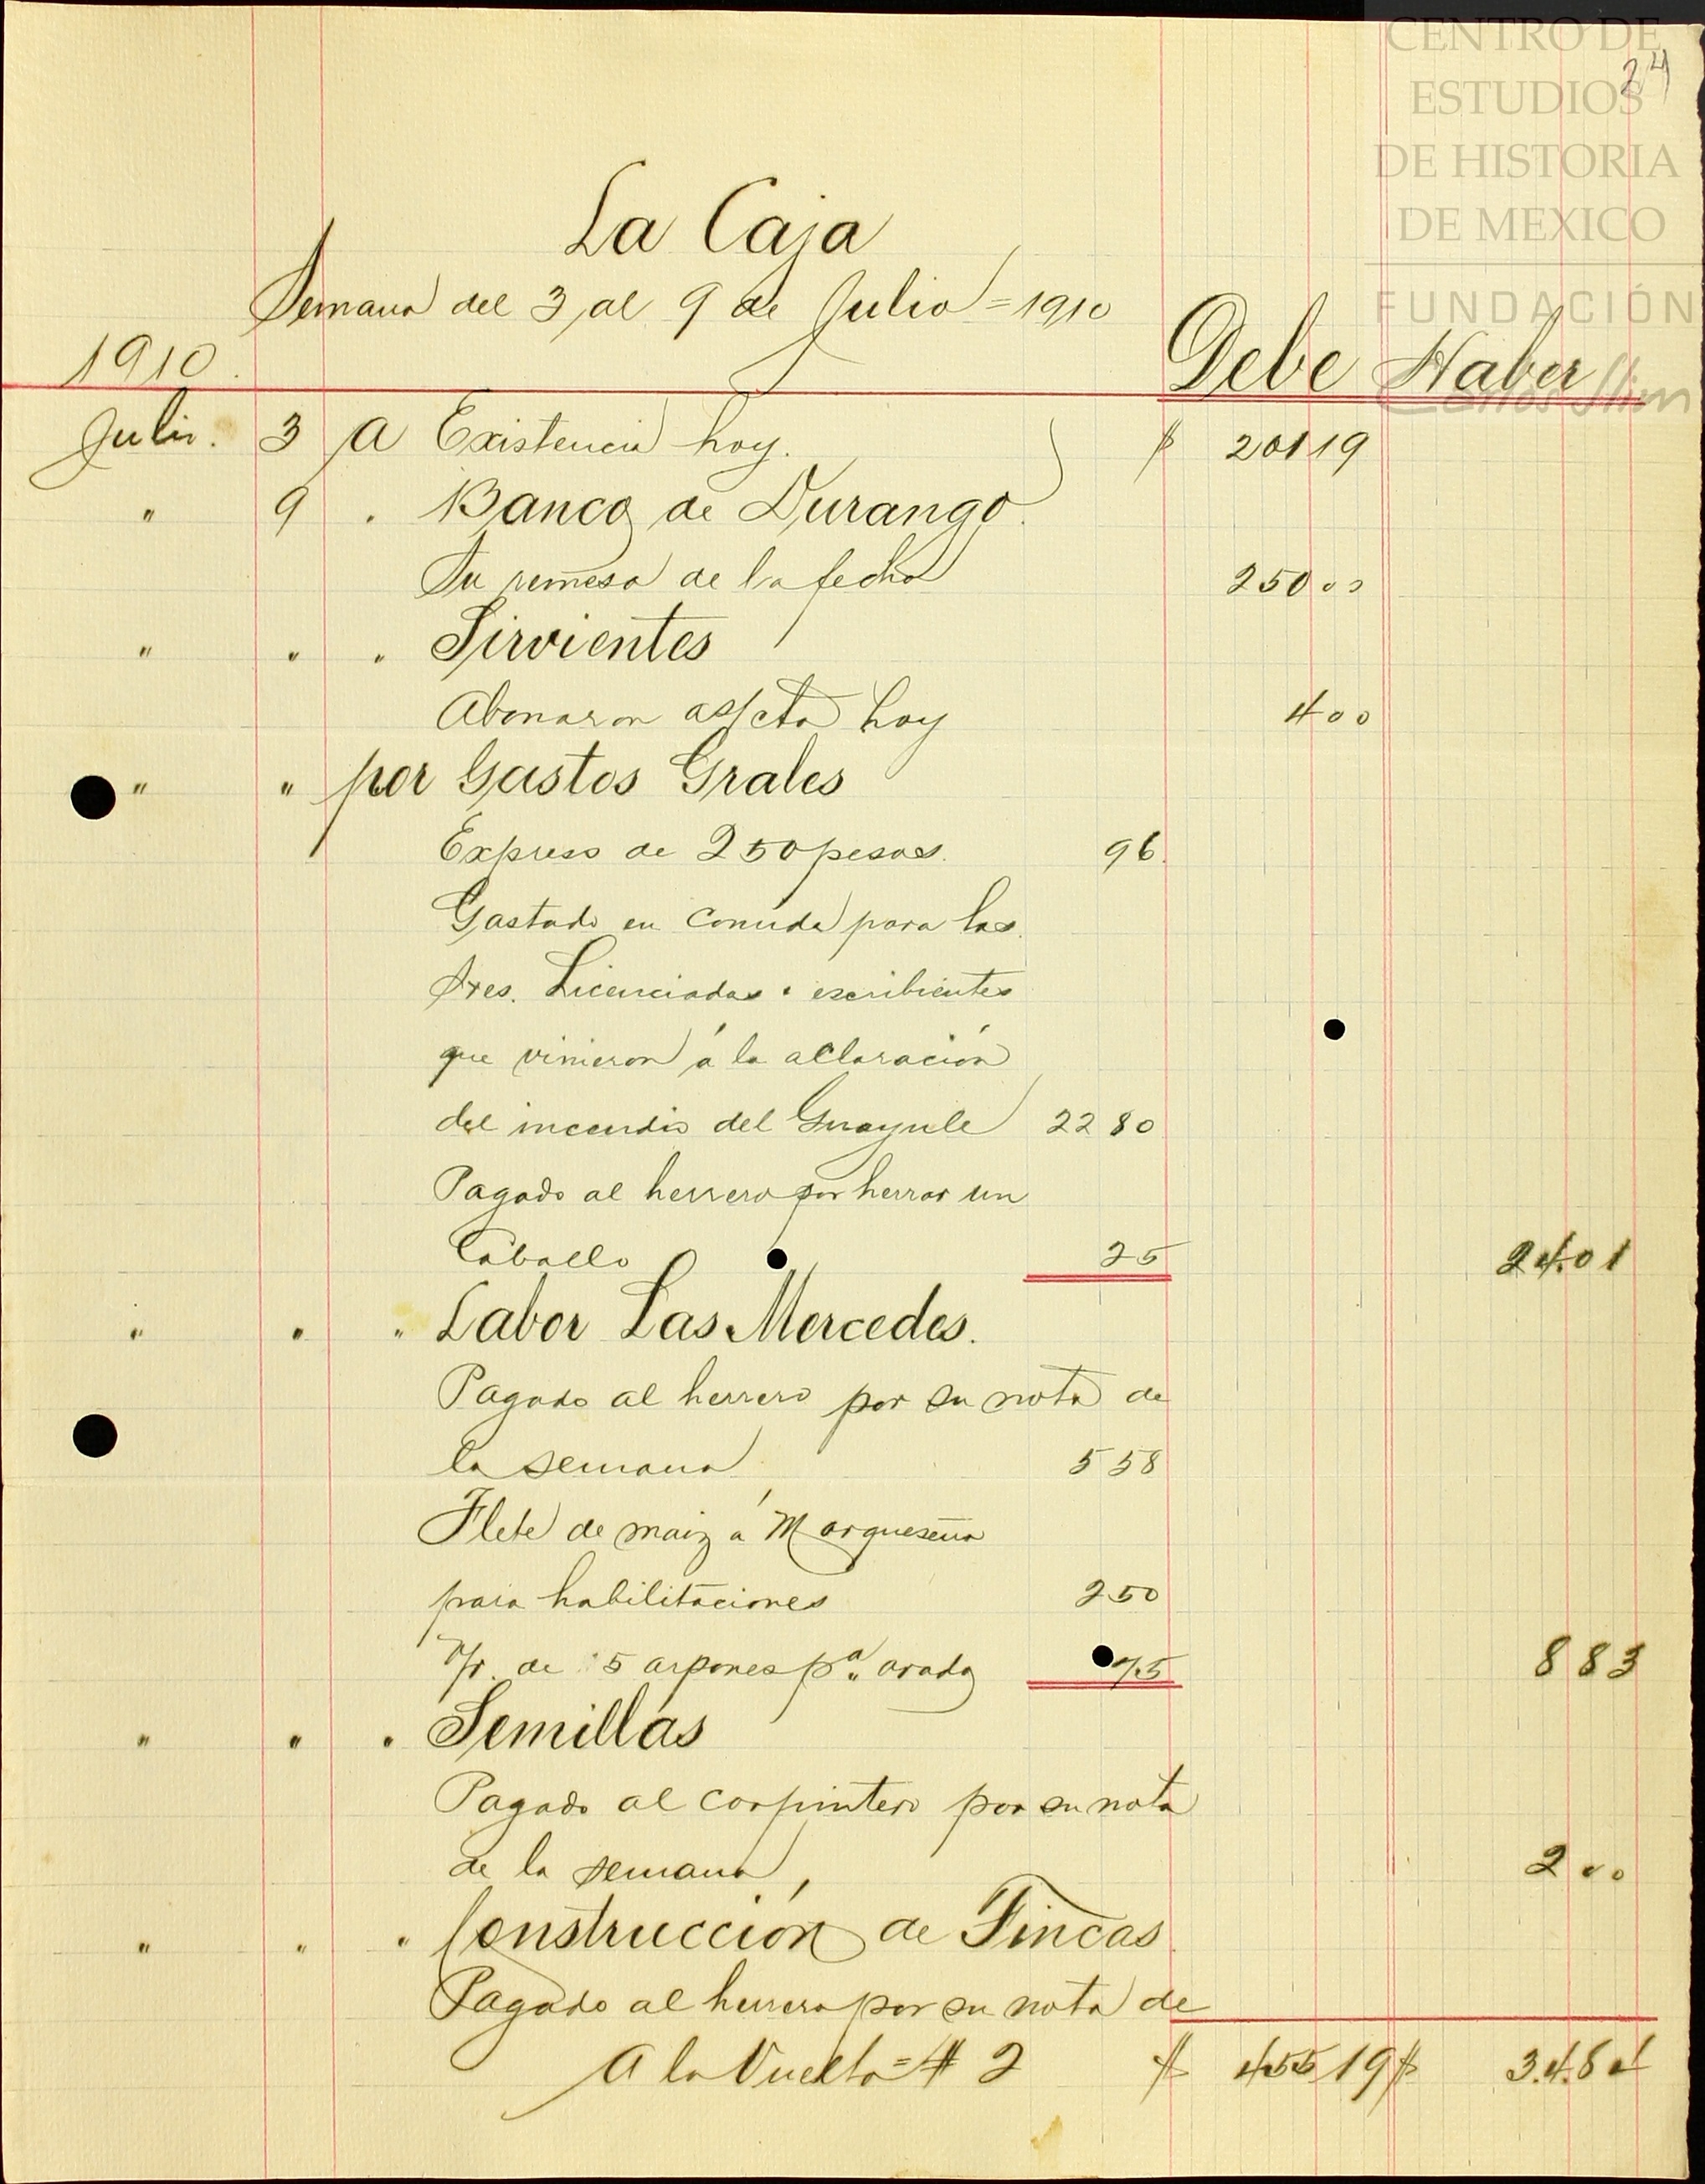 CENTRO DE
ESTUDIOS
DE HISTORIA
DE MEXICO
FUNDACIÓN
Carlos Slim
24
La Caja
Semana del 3 al 9 de Julio = 1910
1910. Debe Haber
Julio. 3 A Existencia hoy. $ 201 19
" 9 . Banco de Durango.
Su remesa de la fecha 250 00
" " " Sirvientes
Abonaron as/cta hoy 4 00
" " por Gastos Grales
Expreso de 250 pesos. 96
Gastado en comida para los
Sres. Licenciados . escribientes
que vinieron á la aclaración
del incendio del Guayule 22 80
Pagado al herrero por herrar un
Caballo 25 24.01
" " " Labor Las Mercedes.
Pagado al herrero por su nota de
la semana 5 58
Flete de maiz á Marqueseña
para habilitaciones 2 50
Vr. de 5 arpones pa. arado 75 8 83
" " " Semillas
Pagado al carpintero por su nota
de la semana, 2 00
" " " Construcción de Fincas
Pagado al herrero por su nota de
A la Vuelta = # 2 $ 455 19 $ 34.84